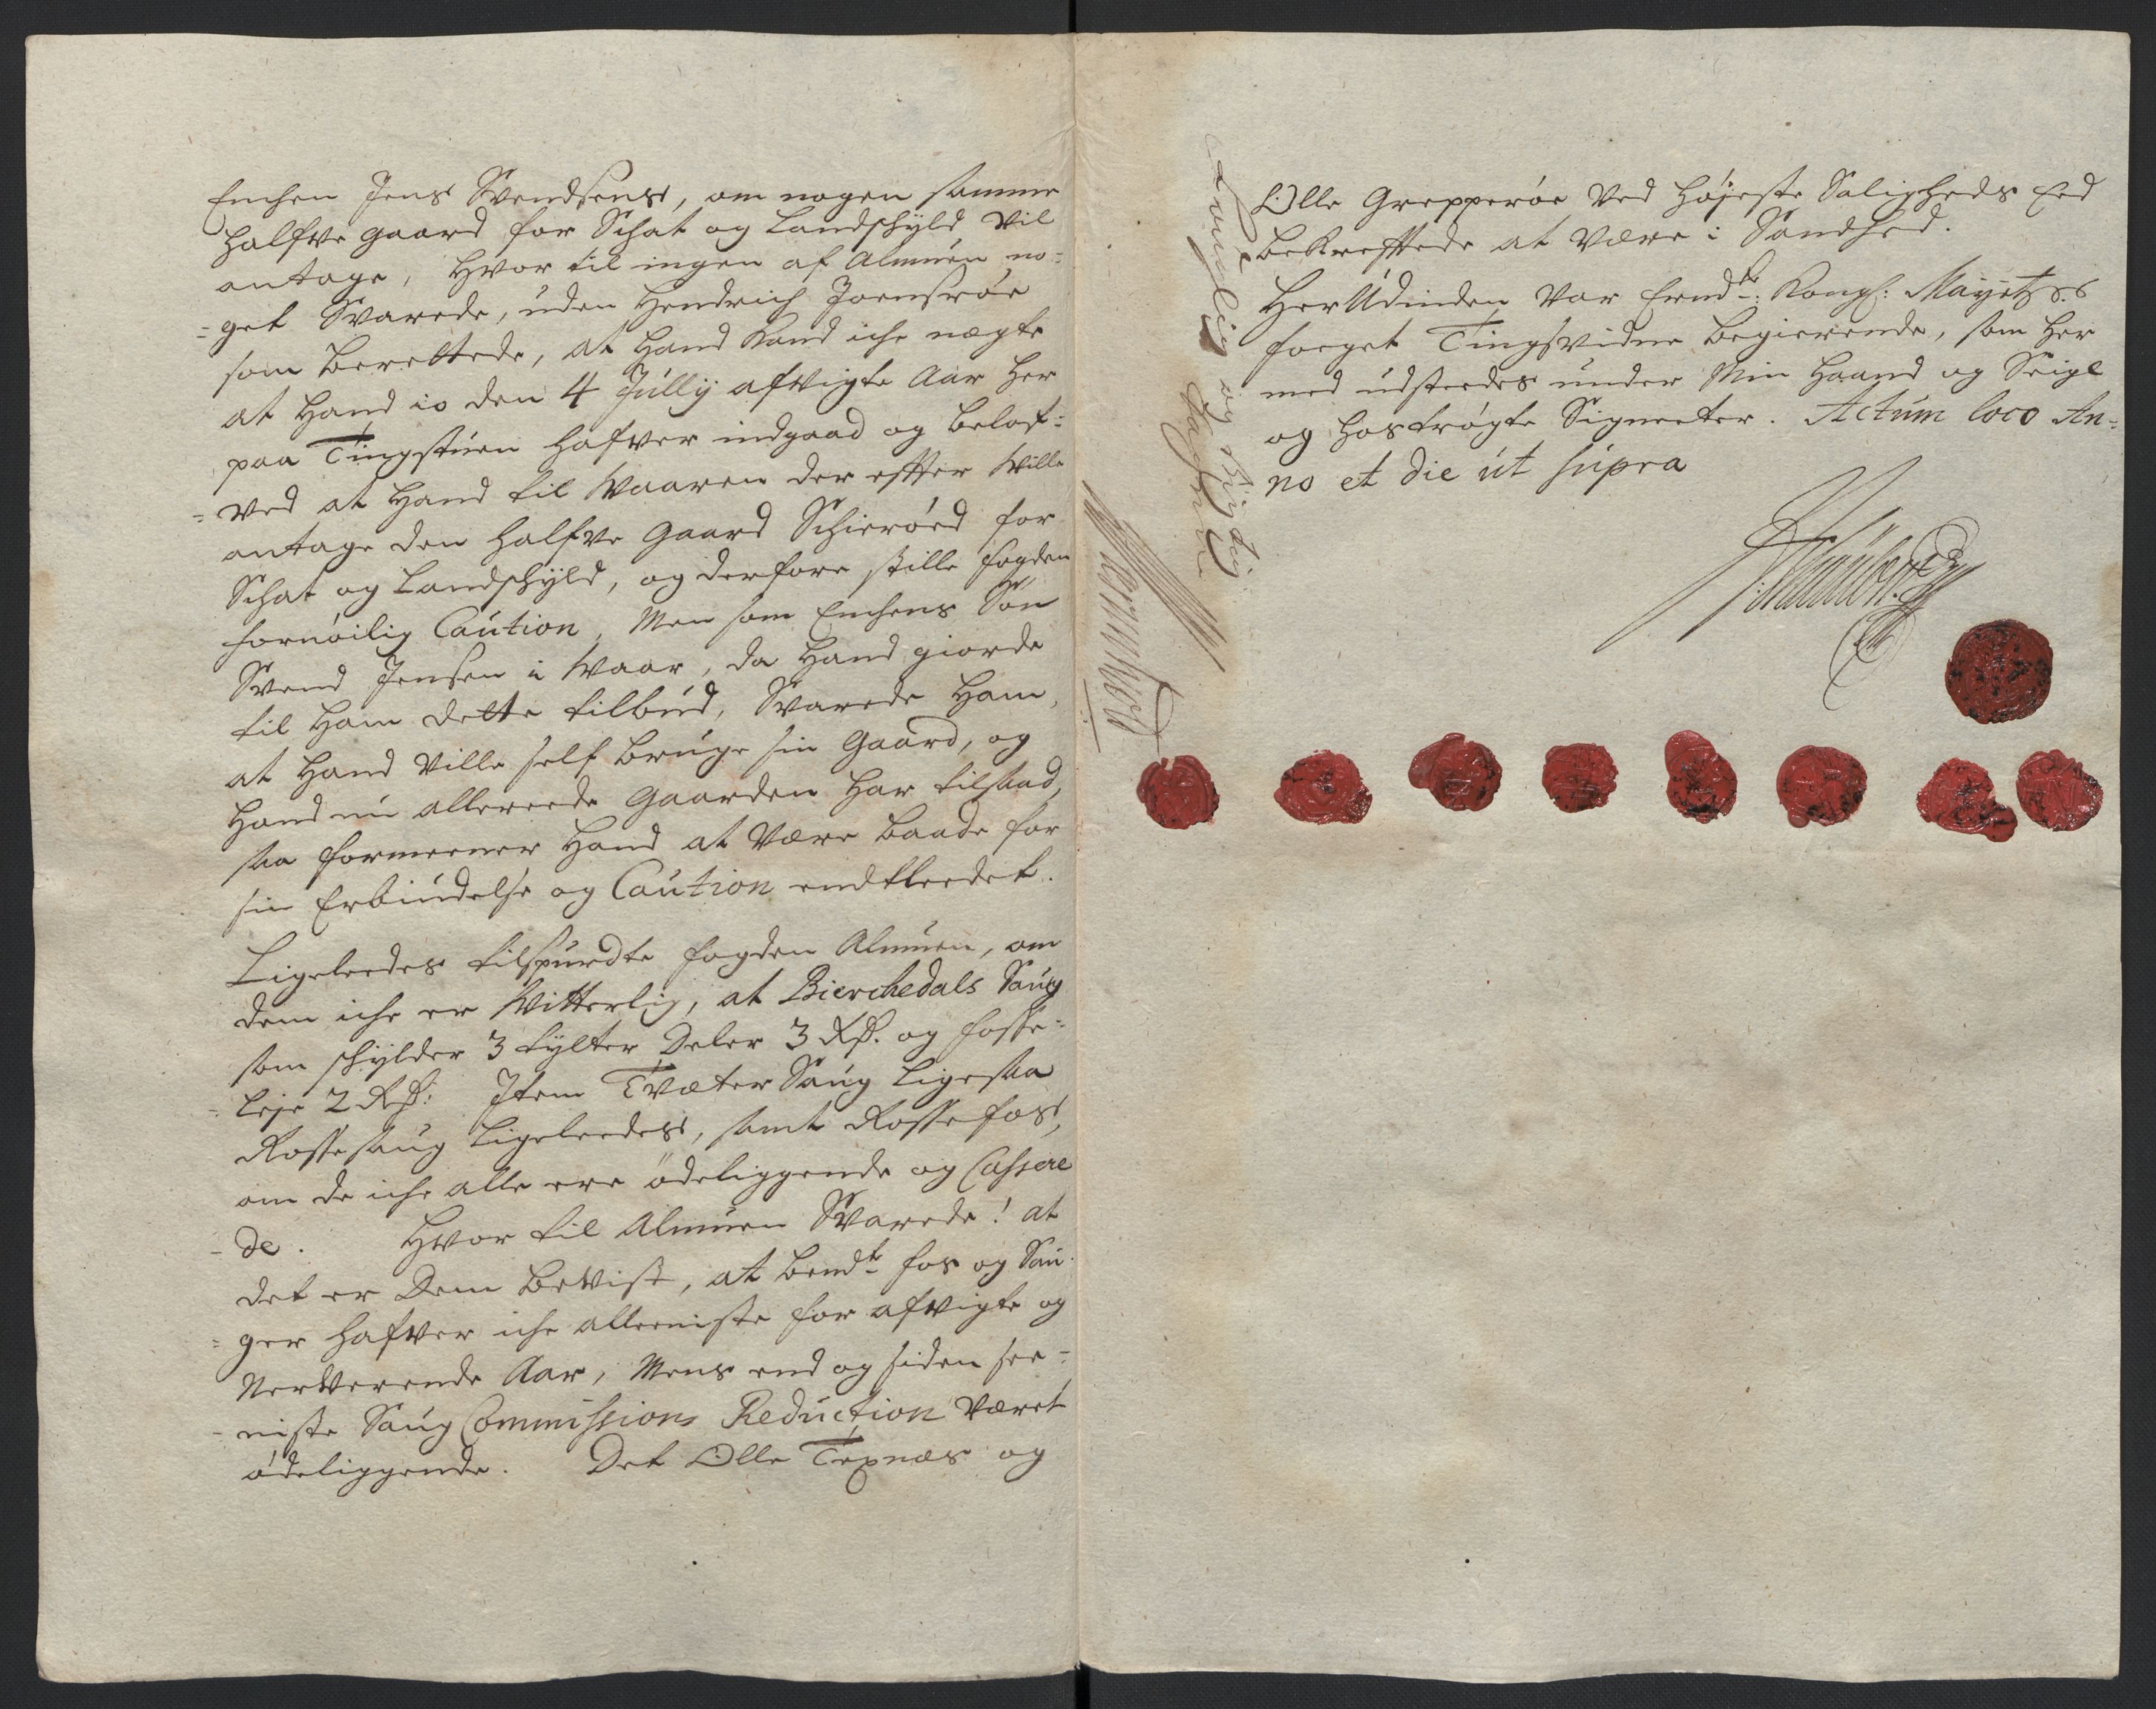 Enchen Jens Svendsens, om nogen samme
halfve gaard for Schat og Landschyld vil
antage, hvor til ingen af Almuen no-
-get Svarede, uden Hendrich Joensrøe
som berettede, at hand kand iche negte
at hand io den 4 Jully afvigte Aar her
paa Tingstuen hafver indgaad og belof-
-ved at hand til Waaren der effter wille
antage den halfve gaard Schierøed for
Schat og Landschyld, og derfore stille fogden
fornøilig Caution, Men som Enchens Søn
Svend Jensen i Waar, da hand giorde
til ham dette tilbud, Svarede ham,
at hand ville self bruge sin Gaard, og
hand nu allereede gaarden har tilsaad,
saa formeener hand at være baade for
sin Erbindelse og Caution endtleedet.
Ligeleedes tilspurdte fogden Almuen, om
dem iche er Witterlig, at Bierchedals Saug
som schylder 3 tylter Deler 3 Rß. og fosse-
-leje 2 Rß: Item Tvæter Saug Ligesaa
Rossesaug Ligeleedes, samt Rossefos,
om de iche alle ere ødeliggende og Cassere
-de. Hvor til Almuen Svarede! at
det er Dem bevist, at bemdte fos og Sau-
-ger hafver iche alleeniste for afvigte og
Nerverende Aar, Mens end og siden see-
-niste Saug Commissions Reduction været
ødeliggende. Det Olle Texnæs og
Olle Grepperøe ved højeste Saligheds Eed
bekrefftede at være i Sandhed.
Her Udinden var Ermdte: Kongl: Mayetz s.
foeget Tingsvidne begierende, som her
med udsteedes under Min Haand og Seigl
og hostrøgte Signeeter. Actum loco An-
no et die ut supra
og Rigtig